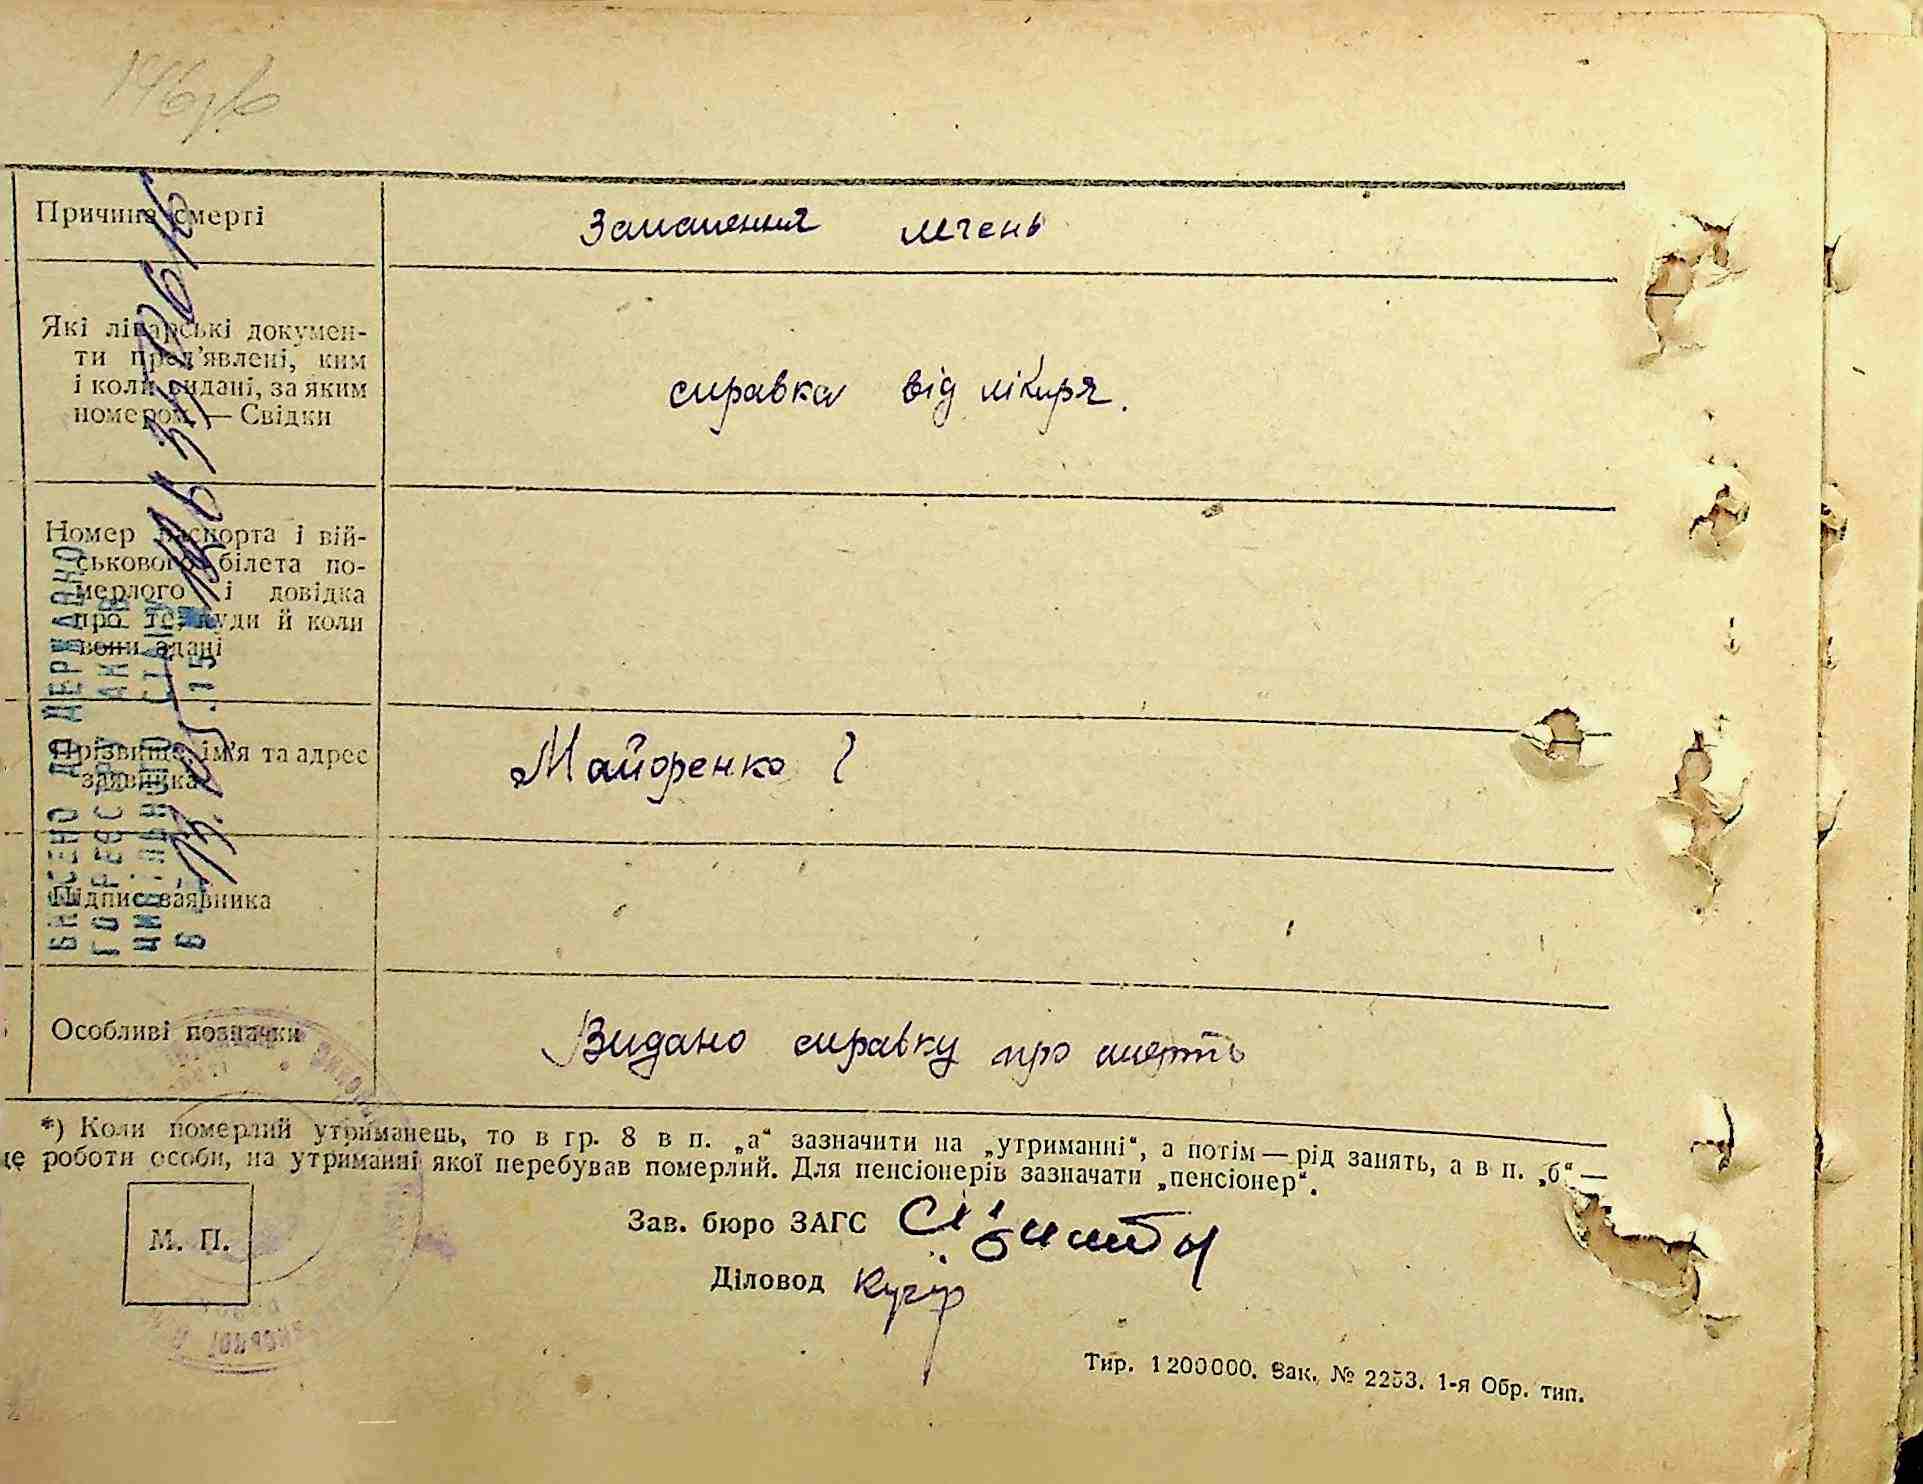 Причина смерті
Запалення легень
Які лікарські докумен-
ти пред'явлені, ким
і коли видані, за яким
номером. — Свідки
справка від лікаря.
Номер паспорта і вій-
ськового білета по-
мерлого і довідка
про те, куди й коли
вони здані
Прізвище, ім'я та адрес
заявника
Майоренко Г
Підпис заявника
Особливі позначки
Видано справку про смерть
ВНЕСЕНО ДО ДЕРЖАВНО
ГО РЕЄСТРУ АКТІВ
ЦИВІЛЬНОГО СТАНУ
*) Коли померлий утриманець, то в гр. 8 в п. „а“ зазначити на „утриманні“, а потім — рід занять, а в п. „б“ —
це роботи особи, на утриманні якої перебував померлий. Для пенсіонерів зазначати „пенсіонер“.
М. П.
Зав. бюро ЗАГС
Діловод
Тир. 1200000. Зак. № 2253. 1-я Обр. тип.